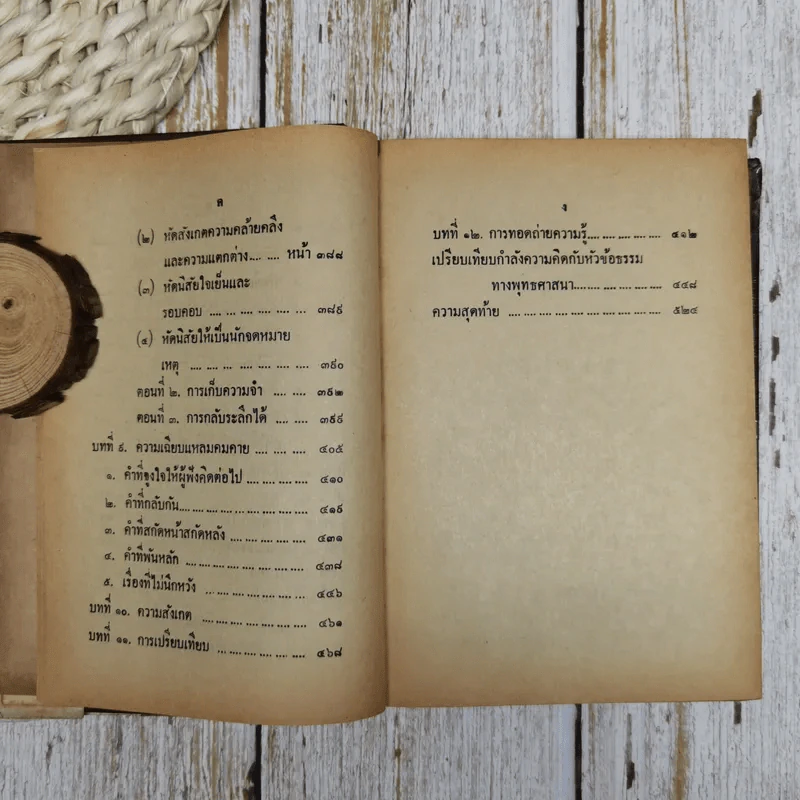 ค
(๒) หัดสังเกตความคล้ายคลึง
และความแตกต่าง.... .... หน้า ๓๘๘
(๓) หัดนิสัยใจเย็นและ
รอบคอบ .... .... .... .... .... .... ๓๘๙
(๔) หัดนิสัยให้เป็นนักจดหมาย
เหตุ .... .... .... .... .... .... .... ๓๙๐
ตอนที่ ๒. การเก็บความจำ .... .... ๓๙๒
ตอนที่ ๓. การกลับระลึกได้ .... .... ๓๙๙
บทที่ ๙. ความเฉียบแหลมคมคาย .... .... .... ๔๐๕
๑. คำที่จูงใจให้ผู้ฟังคิดต่อไป .... .... .... .... ๔๑๐
๒. คำที่กลับกัน.... .... .... .... .... .... .... .... ๔๑๙
๓. คำที่สกัดหน้าสกัดหลัง .... .... .... .... .... ๔๓๑
๔. คำที่พ้นหลัก .... .... .... .... .... .... .... ๔๓๘
๕. เรื่องที่ไม่นึกหวัง .... .... .... .... .... .... ๔๔๖
บทที่ ๑๐. ความสังเกต .... .... .... .... .... .... ๔๖๑
บทที่ ๑๑. การเปรียบเทียบ .... .... .... .... .... ๔๖๘
ง
บทที่ ๑๒. การทอดถ่ายความรู้.... .... .... .... .... ๔๑๒
เปรียบเทียบกำลังความคิดกับหัวข้อธรรม
ทางพุทธศาสนา.... .... .... .... .... .... ๔๔๘
ความสุดท้าย .... .... .... .... .... .... .... .... .... ๕๒๔